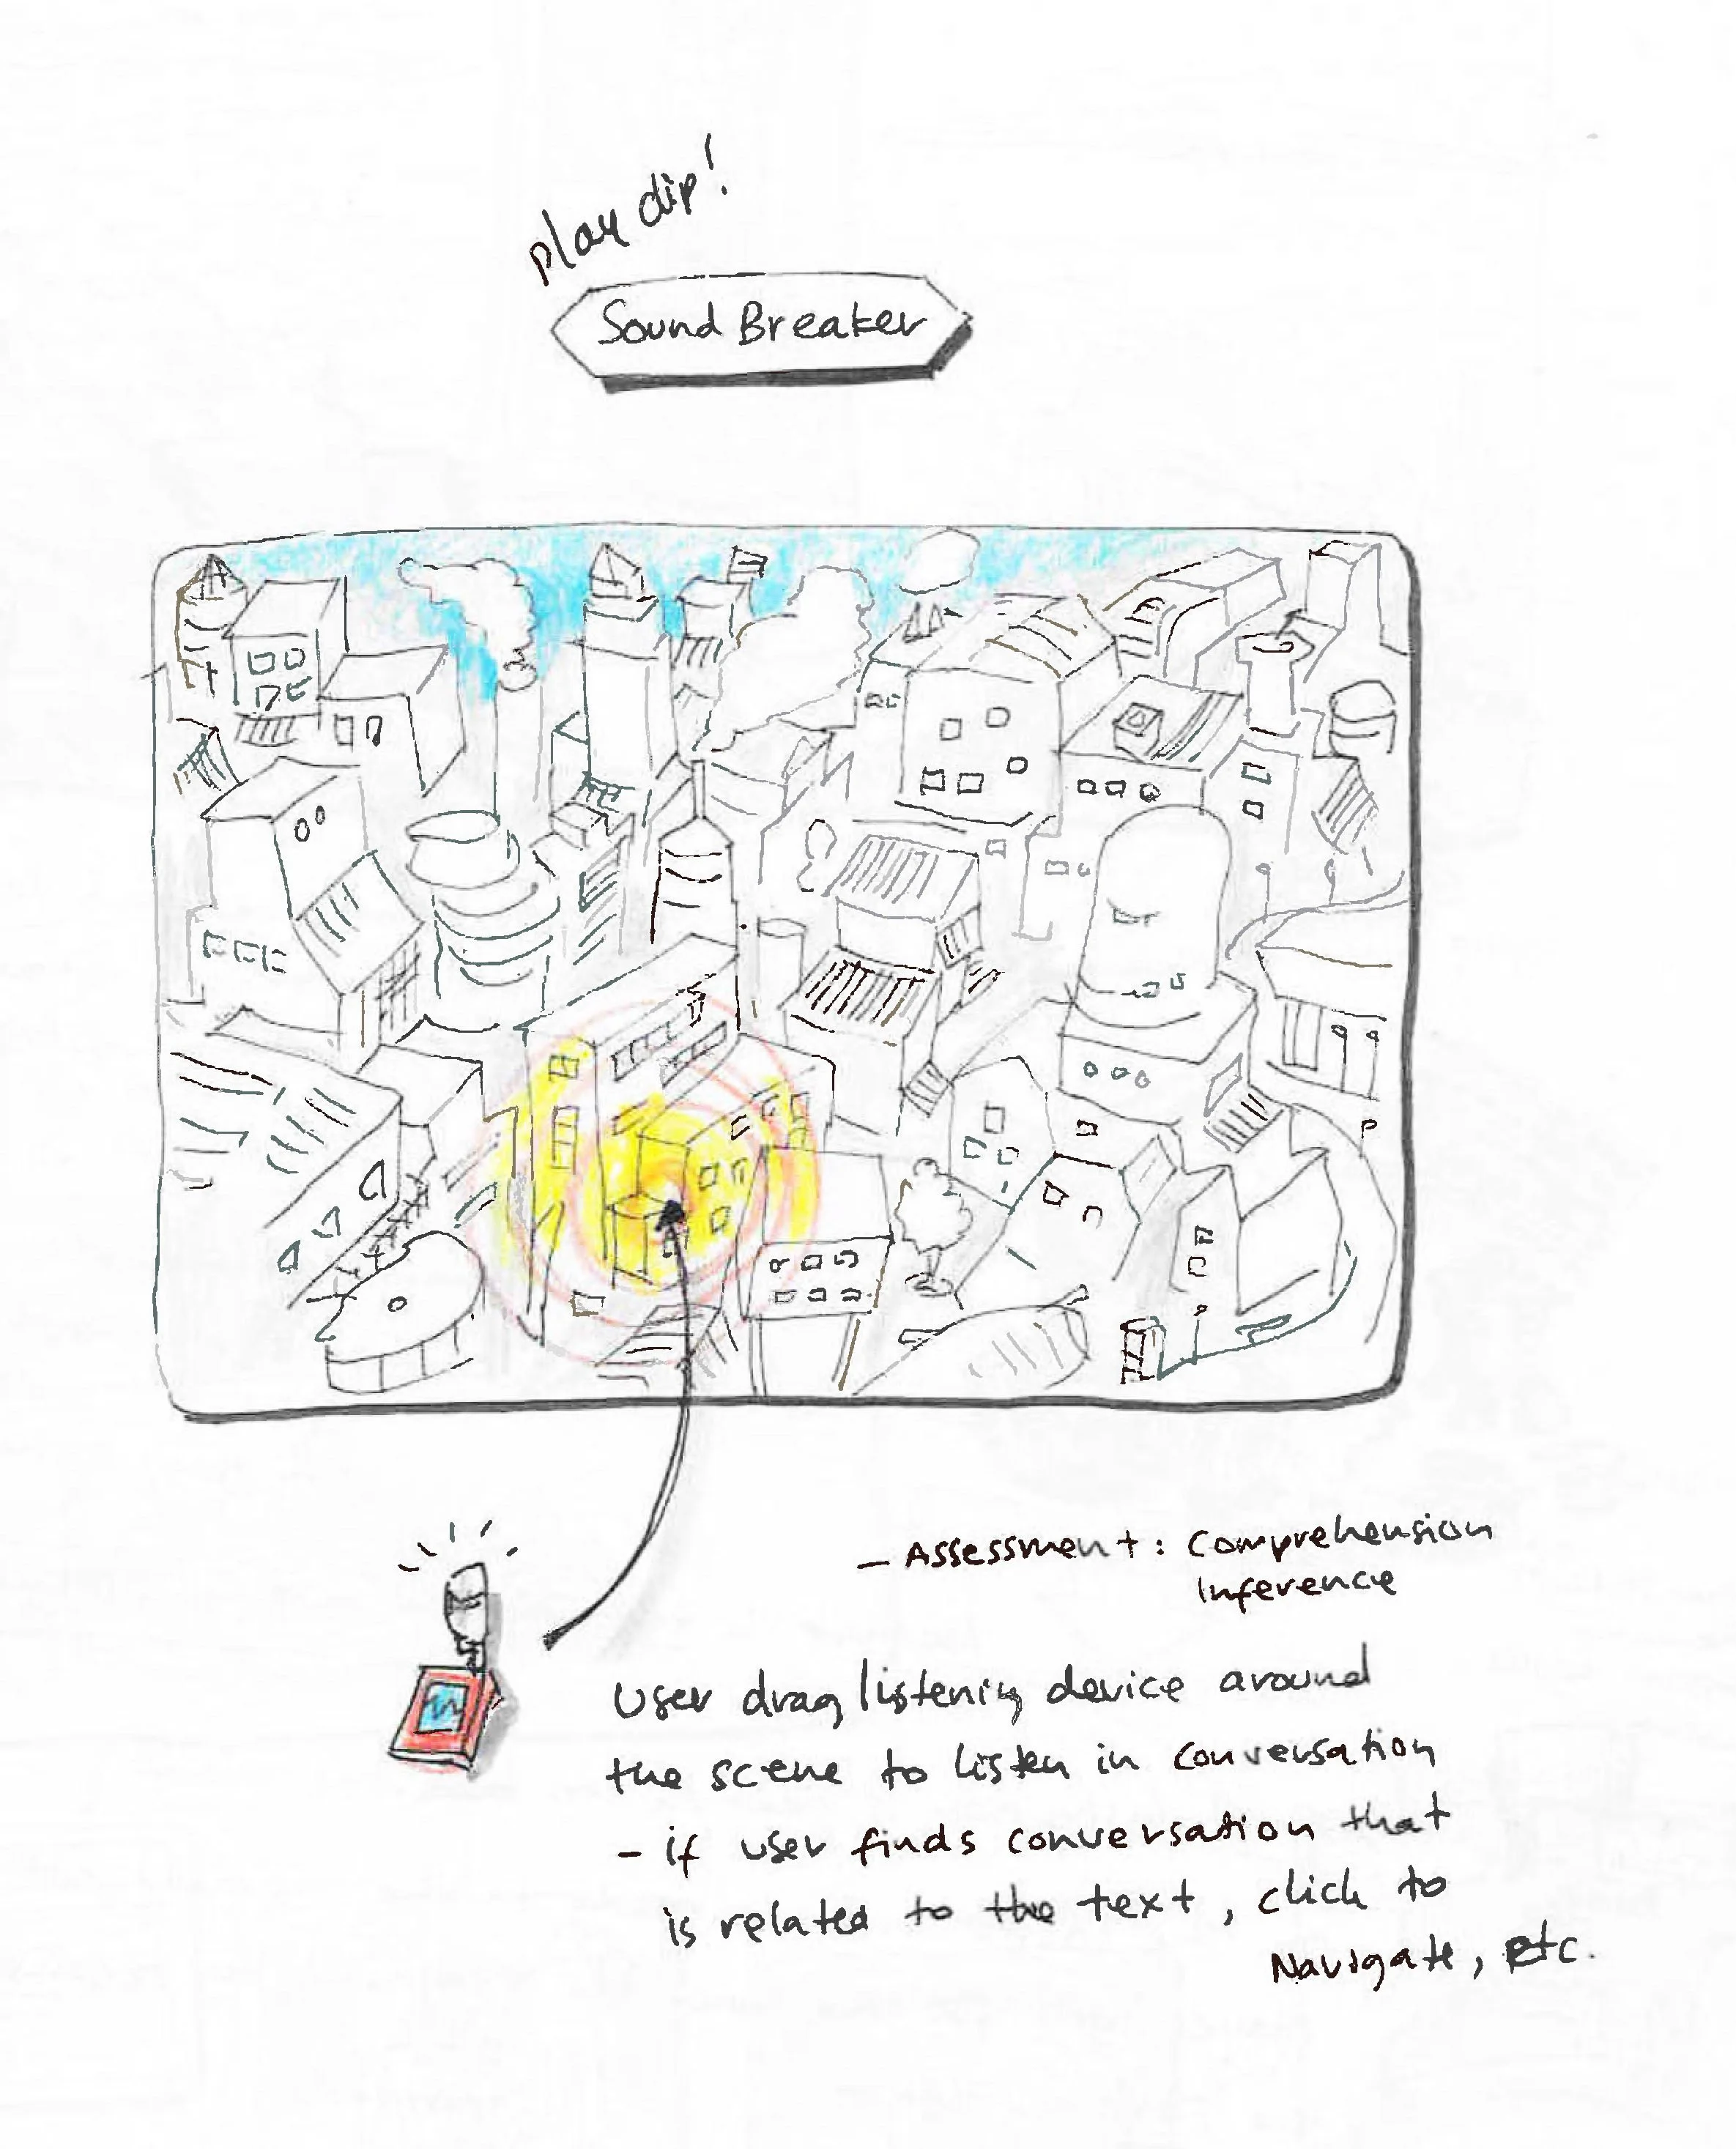 play clip!
Sound Breaker
- Assessment: Comprehension
Inference
User drag listening device around
the scene to listen in conversation
- if user finds conversation that
is related to the text, click to
Navigate, etc.